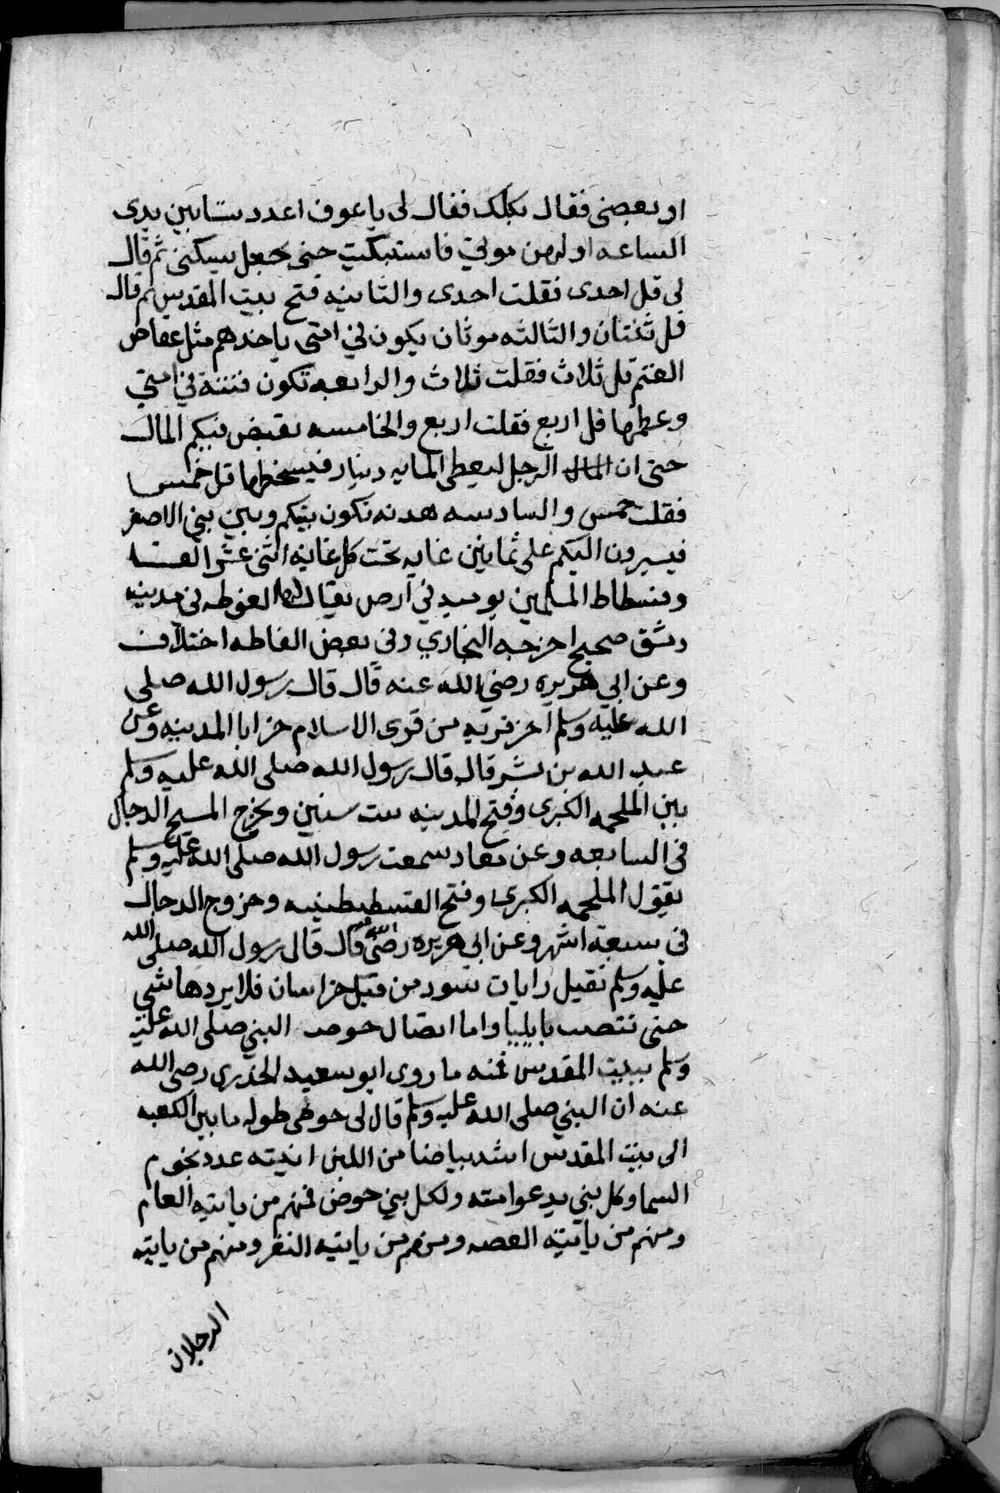 او بعضي فقال بكلك فقال لى يا عوف اعدد ستا بين يدى
الساعه اولهن موتي فاستبكيت حتى جعل يسكتني ثم قال
لى قل احدى فقلت احدى والثانيه فتح بيت المقدس ثم قال
قل ثنتان والثالثه موتان يكون في امتى ياخذهم مثل عقاص
الغنم قل ثلاث فقلت ثلاث والرابعه تكون فتنة في امتي
وعظمها قل اربع فقلت اربع والخامسه يفيض فيكم المال
حتى ان الرجل ليعطى المايه دينار فيسخطها قل خمسا
فقلت خمس والسادسه هدنه تكون بينكم وبين بني الاصفر
فيسيرون اليكم على ثمانين غايه تحت كل غاية اثنى عشر الفا
وفسطاط المسلمين يوميد في ارض يقال لها الغوطه في مدينه
دمشق صحيح اخرجه البخاري وفى بعض الفاظه اختلاف
وعن ابي هريره رضي الله عنه قال قال رسول الله صلى
الله عليه وسلم اخر قريه من قرى الاسلام خرابا المدينه وعن
عبد الله بن بشر قال قال رسول الله صلى الله عليه وسلم
بين الملحمه الكبرى وفتح المدينه ست سنين ويخرج المسيح الدجال
فى السابعه وعن معاد سمعت رسول الله صلى الله عليه وسلم
يقول الملحمه الكبرى وفتح القسطيطينيه وخروج الدجال
فى سبعة اشهر وعن ابى هريره رضى الله عنه قال قال رسول الله صلى الله
عليه وسلم تقبل رايات سود من قبل خراسان فلا يردها شي
حتى تنتصب بايليا واما اتصال حوض النبي صلى الله عليه
وسلم ببيت المقدس فمنه ما روى ابو سعيد الخدرى رضى الله
عنه ان النبي صلى الله عليه وسلم قال لى حوض طوله ما بين الكعبه
الى بيت المقدس اشد بياضا من اللبن انيته عدد نجوم
السما وكل نبي يدعوا امته ولكل نبي حوض فمنهم من ياتيه العام
ومنهم من ياتيه العصبه ومنهم من ياتيه النفر ومنهم من ياتيه
الرجلان